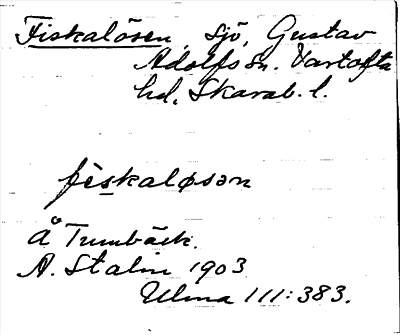 Fiskalösen, sjö, Gustav
Adolfs sn. Vartofta
hd, Skarab. l.
fìskaløsən
å Tumbäck.
A. Stalin 1903
Ulma 111:383.